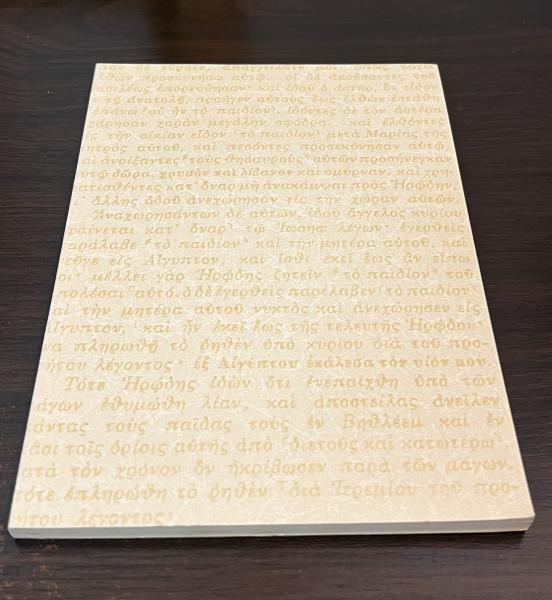 παν δὲ εὕρητε, ἀπαγγείλατέ μοι, ὅπως κἀγὼ
λθὼν προσκυνήσω αὐτῷ. οἱ δὲ ἀκούσαντες τοῦ
ασιλέως ἐπορεύθησαν· καὶ ἰδοὺ ὁ ἀστήρ, ὃν εἶδον
ν τῇ ἀνατολῇ, προῆγεν αὐτοὺς ἕως ἐλθὼν ἐστάθη
ἐπάνω ⸂οὗ ἦν τὸ παιδίον⸃. ἰδόντες δὲ τὸν ἀστέρα
χάρησαν χαρὰν μεγάλην σφόδρα. καὶ ἐλθόντες
ἰς τὴν οἰκίαν εἶδον ⸂τὸ παιδίον⸃ μετὰ Μαρίας τῆς
ητρὸς αὐτοῦ, καὶ πεσόντες προσεκύνησαν αὐτῷ,
αὶ ἀνοίξαντες ⸂τοὺς θησαυροὺς⸃ αὐτῶν προσήνεγκαν
ὐτῷ δῶρα, χρυσὸν καὶ λίβανον καὶ σμύρναν. καὶ χρη-
ατισθέντες κατ᾽ ὄναρ μὴ ἀνακάμψαι πρὸς Ἡρῴδην,
ι᾽ ἄλλης ὁδοῦ ἀνεχώρησαν εἰς τὴν χώραν αὐτῶν.
Ἀναχωρησάντων δὲ αὐτῶν, ἰδοὺ ἄγγελος κυρίου
φαίνεται κατ᾽ ὄναρ⸃ τῷ Ἰωσὴφ λέγων· ἐγερθεὶς
αράλαβε ⸂τὸ παιδίον⸃ καὶ τὴν μητέρα αὐτοῦ, καὶ
εῦγε εἰς Αἴγυπτον, καὶ ἴσθι ἐκεῖ ἕως ἂν εἴπω
οι· μέλλει γὰρ Ἡρῴδης ζητεῖν ⸂τὸ παιδίον⸃ τοῦ
πολέσαι ⸀αὐτό. ὁ δὲ ἐγερθεὶς παρέλαβεν ⸂τὸ παιδίον⸃
αὶ τὴν μητέρα αὐτοῦ νυκτὸς καὶ ἀνεχώρησεν εἰς
ἴγυπτον, ⸂καὶ ἦν ἐκεῖ ἕως τῆς τελευτῆς Ἡρῴδου·
α πληρωθῇ τὸ ῥηθὲν ὑπὸ κυρίου διὰ τοῦ προ-
ήτου λέγοντος· ἐξ Αἰγύπτου ἐκάλεσα τὸν υἱόν μου.
Τότε Ἡρῴδης ἰδὼν ὅτι ἐνεπαίχθη ὑπὸ τῶν
άγων ἐθυμώθη λίαν, καὶ ἀποστείλας ἀνεῖλεν
άντας τοὺς παῖδας τοὺς ἐν Βηθλέεμ καὶ ἐν
ᾶσι τοῖς ὁρίοις αὐτῆς ἀπὸ ⸂διετοῦς καὶ κατωτέρω⸃,
ατὰ τὸν χρόνον ὃν ἠκρίβωσεν παρὰ τῶν μάγων.
ότε ἐπληρώθη τὸ ῥηθὲν ⸆διὰ Ἰερεμίου τοῦ προ-
ήτου λέγοντος·